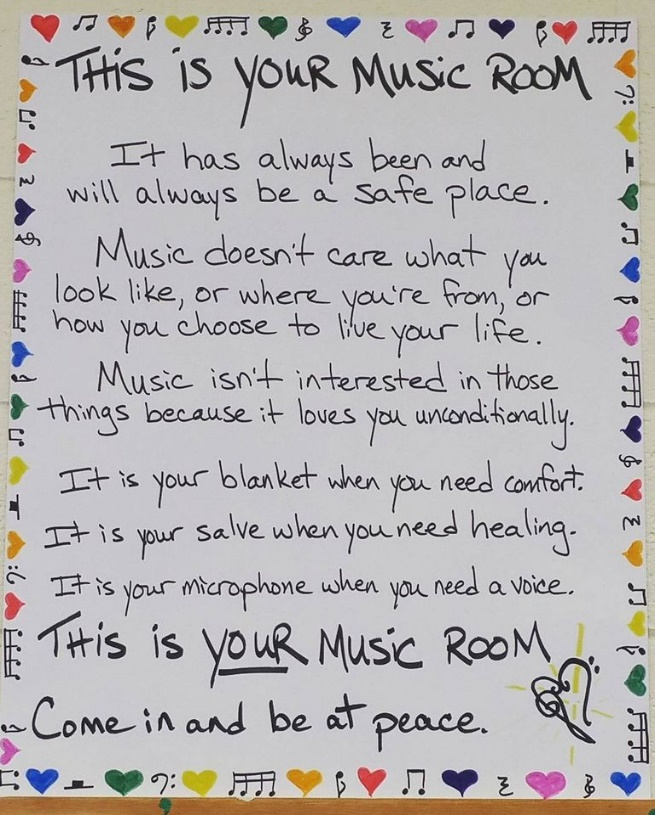 THis is YOUR Music ROOM
It has always been and
will always be a safe place.
Music doesn't care what you
look like, or where you're from, or
how you choose to live your life.
Music isn't interested in those
things because it loves you unconditionally.
It is your blanket when you need comfort.
It is your salve when you need healing.
It is your microphone when you need a voice.
THis is YOUR Music ROOM
Come in and be at peace.